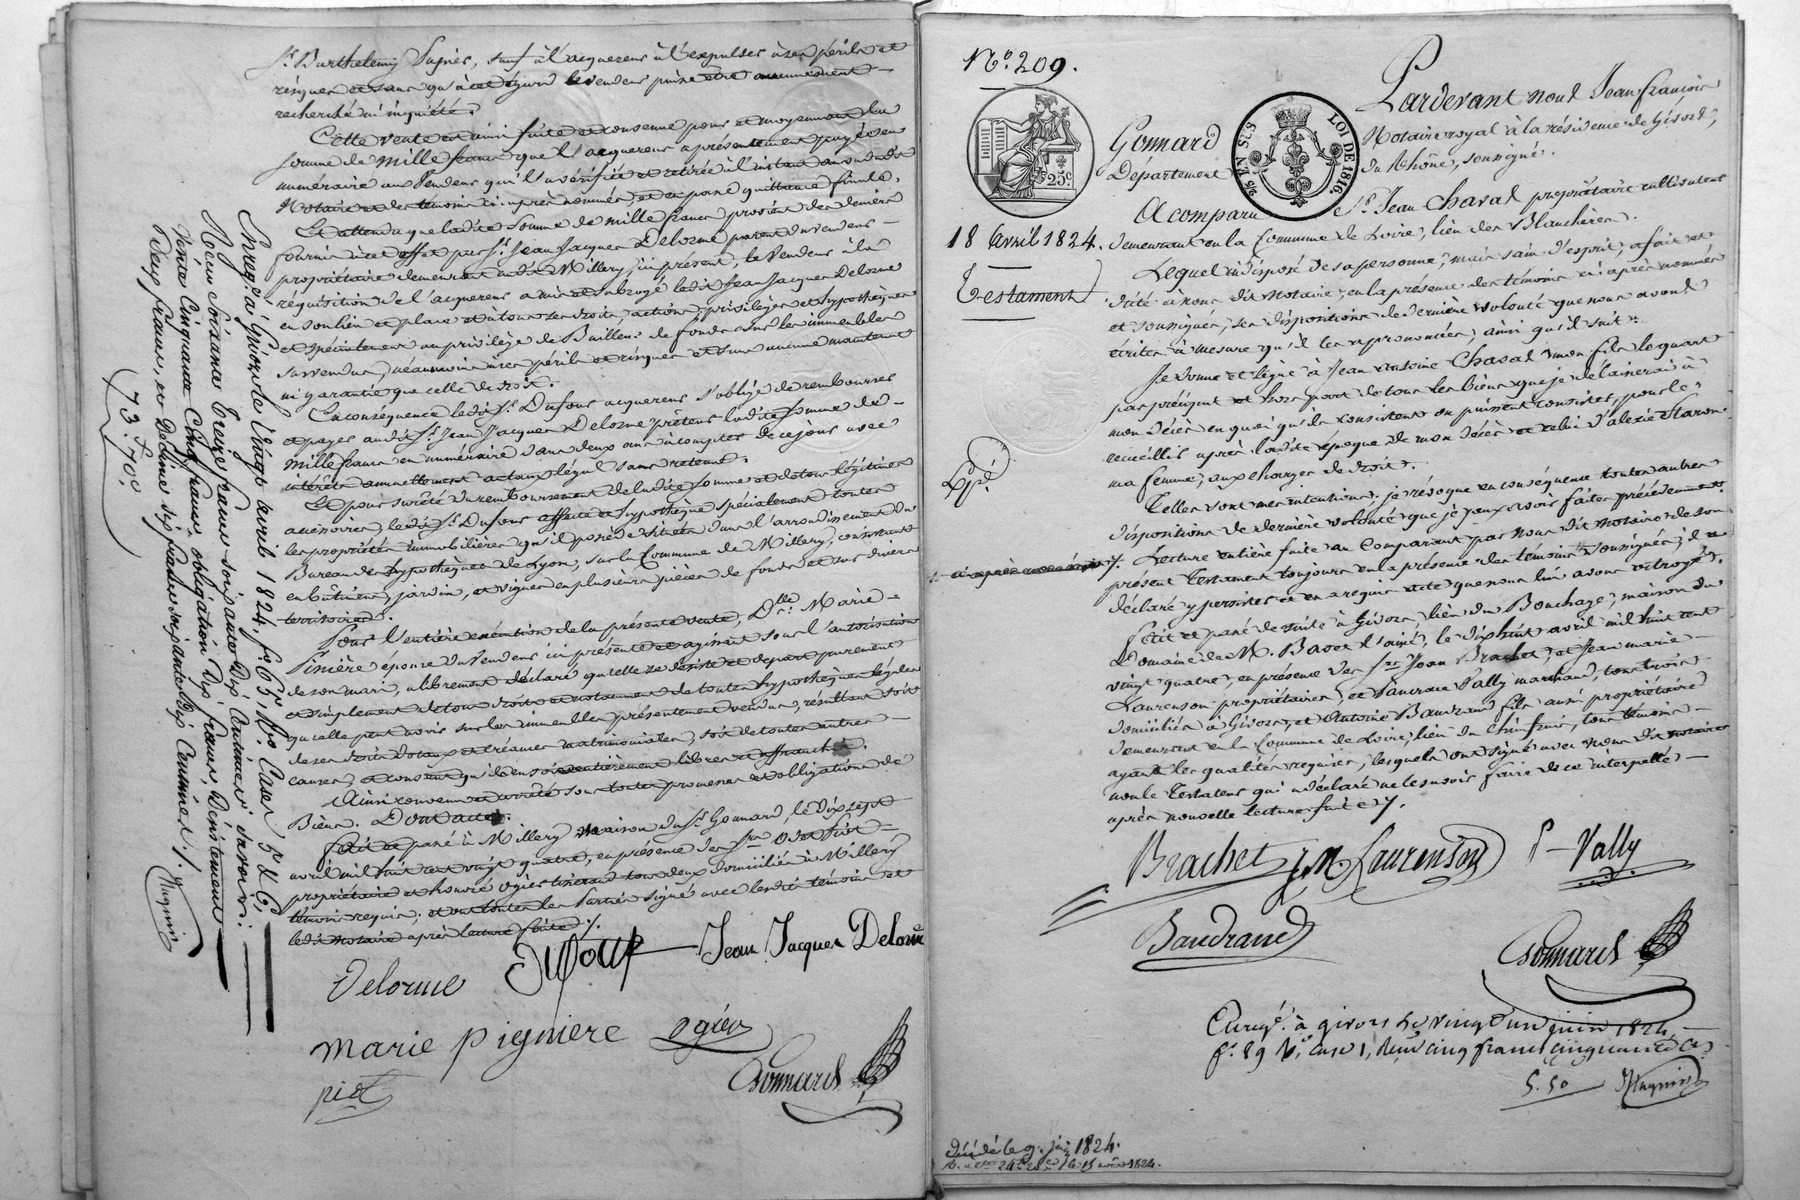 Sr. Barthelemy Pugnet, sauf à l'acquereur à l'expulser à ses périls et
risques et sans qu'à cet égard le vendeur puisse etre aucunement
recherché ni inquiété.
Cette vente est ainsi faite et consenue pour et moyennant la
somme de mille francs que l'acquereur a présentement payée en
numéraire au vendeur qu'il a vérifiée et retirée à l'instant au vu du dit
Notaire et des temoins ci après nommés, et en passe quittance finale.
Et attendu que ladite somme de mille francs provient des deniers
fournis à cet effet par Sr. Jean Jacques Delorme parent du vendeur
propriétaire demeurant audit Millery, ici présent, le vendeur à la
réquisition de l'acquereur a mis et subrogé ledit Jean Jacques Delorme
en son lieu et place et à tous ses droits, actions, privilèges et hypothèques
et spécialement au privilège de Bailleur de fonds sur les immeubles
sus vendus, néanmoins à ses périls et risques et sans aucune maintenue
ni garantie que celle de droit.
En conséquence ledit Sr. Dufour acquereur s'oblige de rembourser
et payer audit Sr. Jean Jacques Delorme prêteur ladite somme de
mille francs en numéraire dans deux ans à compter de ce jour avec
intérêts annuellement au taux légal sans retenue.
Et pour sureté du remboursement de ladite somme et de tous légitimes
accessoires, ledit Sr. Dufour affecte et hypothèque spécialement toutes
les propriétés immobilières qu'il possède situées dans l'arrondissement du
Bureau des hypothèques de Lyon, sur la Commune de Millery, consistant
en bâtiment, jardin, et vignes en plusieurs pièces de fonds et sur divers
territoires.
Pour l'entière exécution de la présente vente, Dlle. Marie
Pinière épouse du vendeur ici présente et agissant sous l'autorisation
de son mari, a librement déclaré qu'elle se désiste et départ purement
et simplement de tous droits et notamment de toutes hypothèques légales
qu'elle peut avoir sur les immeubles présentement vendus, résultant soit
de ses droits dotaux et créances matrimoniales, soit de toutes autres
causes, et consent qu'ils en soient entièrement libres et affranchis.
Ainsi convenu et arrêté sous toutes promesses et obligations de
Biens. Dont acte.
Fait et passé à Millery maison du Sr. Gonnard, le dix sept
avril mil huit cent vingt quatre, en présence des Srs. Odet Piot
propriétaire et honoré ogier tisserand tous deux domiciliés à Millery
témoins requis; et ont toutes les Parties signé avec lesdits témoins et
ledit Notaire après lecture faite./.
Delorme Dufour Jean Jacques Delorme
marie pigniere ogier
piot Gonnard
Enregé. à Givors le vingt avril 1824, fo. 65, Vo. Cases 5 & 6,
Reçu Soixante treize francs soixante dix centimes savoir:
Vente Cinquante Cinq francs, obligation dix francs, Désistement
deux francs, et Décime six francs soixante dix Centimes./.
73. f 70 c. Magnin
No. 209.
25 c
18 avril 1824.
Testament
Expé.
Pardevant nous Jean François
Gonnard
Notaire royal à la résidence de Givors,
Département
du Rhône, soussigné.
1/10 EN SUS LOI DE 1816.
A comparu Sr. Jean Chaval propriétaire cultivateur
demeurant en la Commune de Loire, lieu des Blanchères.
Lequel indisposé de sa personne, mais sain d'esprit, a fait et
dicté à nous dit Notaire, en la présence des témoins ci après nommés
et soussignés, ses dispositions de dernière volonté que nous avons
écrites à mesure qu'il les a prononcées, ainsi qu'il suit:
Je donne et lègue à Jean Antoine Chaval mon fils le quart
par préciput et hors part de tous les biens que je délaisserai à
mon décès en quoi qu'ils consistent ou puissent consister, pour le
recueillir après ladite époque de mon décès et celui d'alexie
ma femme, aux charges de droit.
Telles sont mes intentions. je révoque en conséquence toutes autres
dispositions de dernière volonté que je peux avoir faites précédemment.
Lecture entière faite au Comparant par nous dit Notaire de son
présent Testament toujours en la présence des temoins soussignés; il a
déclaré y persister et en a requis acte que nous lui avons octroyé.
Fait et passé de suite à Givors, lieu du Bouchage, maison du
Domaine de M. l'ainé, le dix huit avril mil huit cent
vingt quatre, en présence des Srs. Jean Brachet, et Jean marie
Laurenson propriétaires, et Vally marchand, tous trois
domiciliés à Givors, et Antoine Baudrand fils aussi propriétaire
demeurant en la Commune de Loire, lieu de, tous temoins
ayant les qualités requises, lesquels ont signé avec nous dit notaire
non le Testateur qui a déclaré ne le savoir faire de ce interpellé
après nouvelle lecture faite./.
Brachet J. M. Laurenson P Vally
Baudrand Gonnard
Enregé. à givors le vingt un juin 1824,
fo. 89 Vo. case 1, reçu cinq francs cinquante ces
5. 50 Magnin
Décédé le 9. juin 1824.